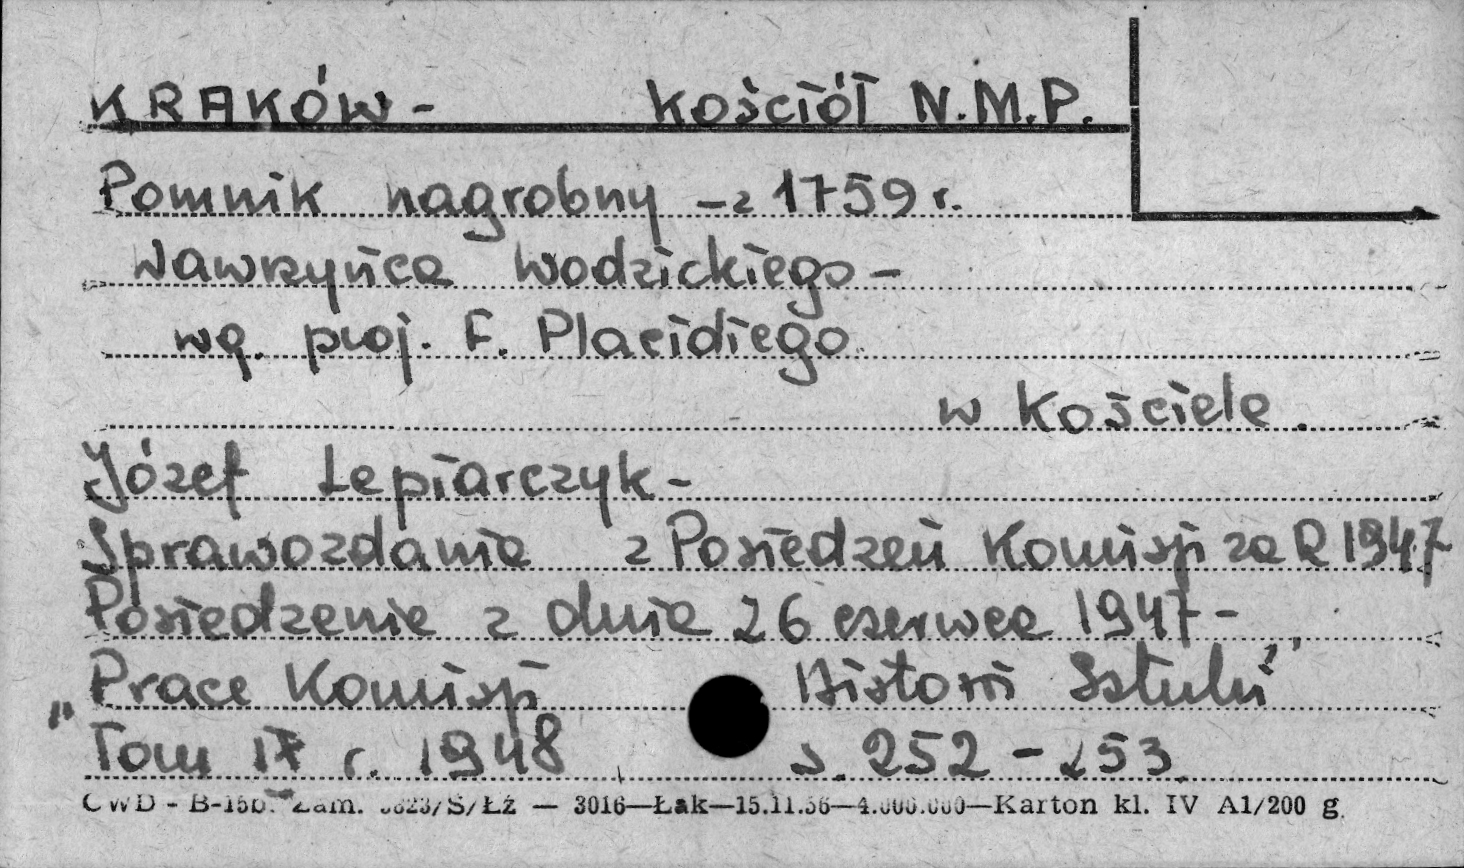 KRAKÓW - Kościół N.M.P.
Pomnik nagrobny - z 1759 r.
Wawrzyńca Wodzickiego -
wg. proj. F. Placidiego
w Kościele.
Józef Lepiarczyk -
Sprawozdanie z Posiedzeń Komisji za R 1947
Posiedzenie z dnia 26 czerwca 1947 -
"Prace Komisji Historii Sztuki"
Tom IX r. 1948 s. 252 - 253
CWD - B-15b. Zam. /S/Łż — 3016—Łak—15.11.56—4.000.000—Karton kl. IV A1/200 g